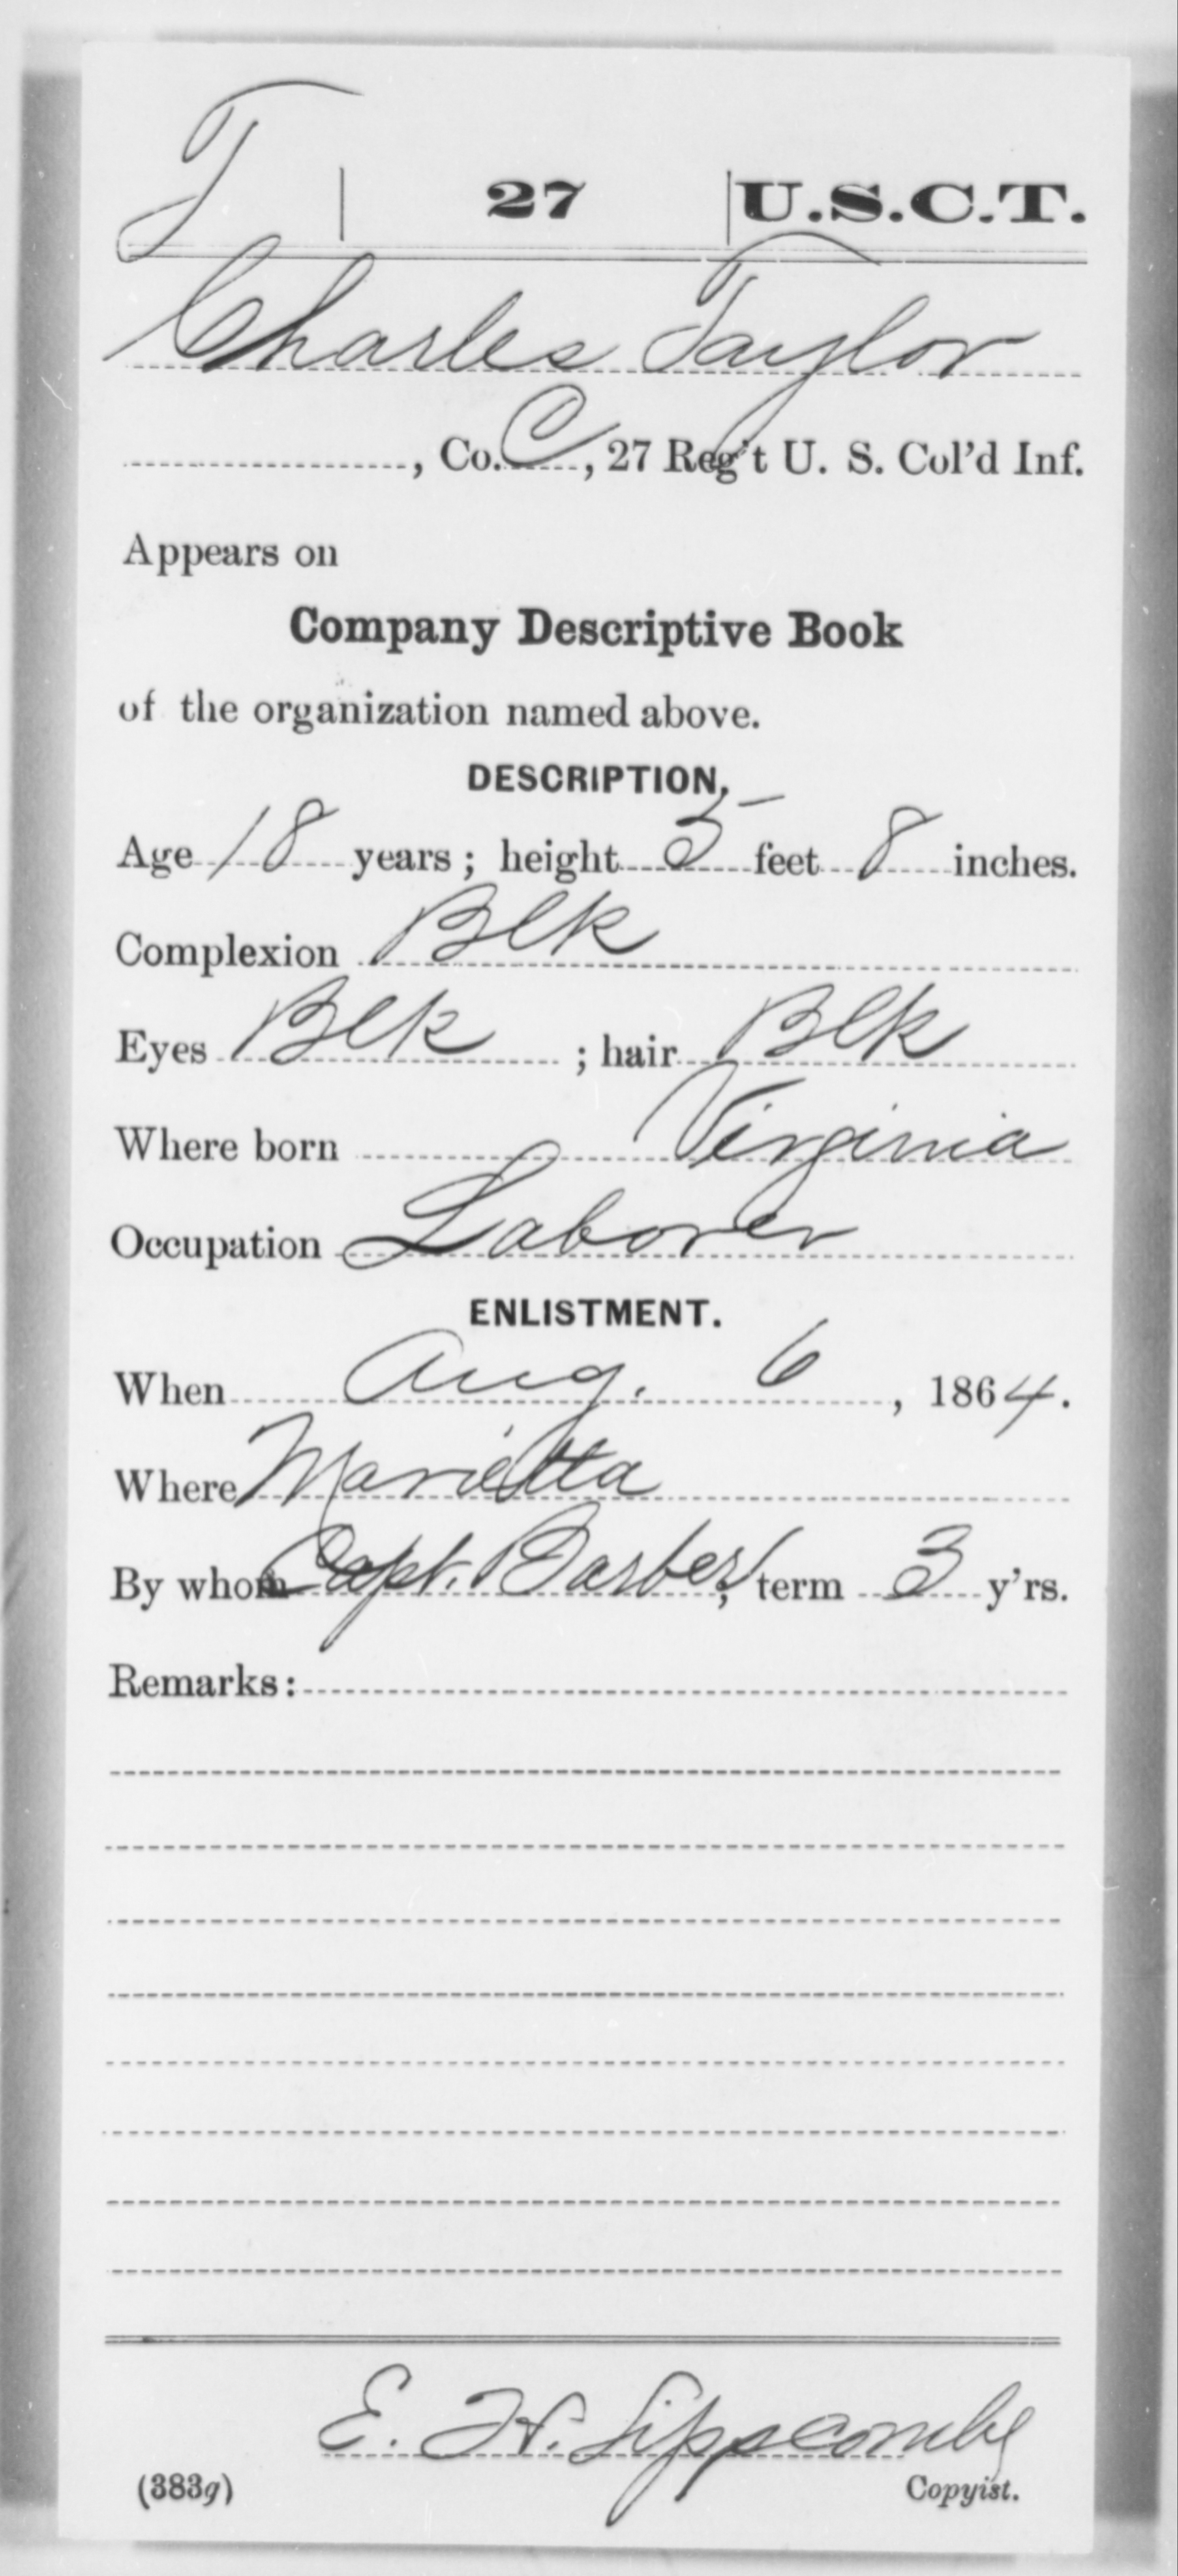 T | 27 | U.S.C.T.
Charles Taylor
, Co. C, 27 Reg't U. S. Col'd Inf.
Appears on
Company Descriptive Book
of the organization named above.
DESCRIPTION.
Age 18 years; height 5 feet 8 inches.
Complexion Blk
Eyes Blk ; hair Blk
Where born Virginia
Occupation Laborer
ENLISTMENT.
When Aug. 6, 1864.
Where Marietta
By whom Capt. Barber, term 3 y'rs.
Remarks:
E. H. Lippscombe
(383g) Copyist.